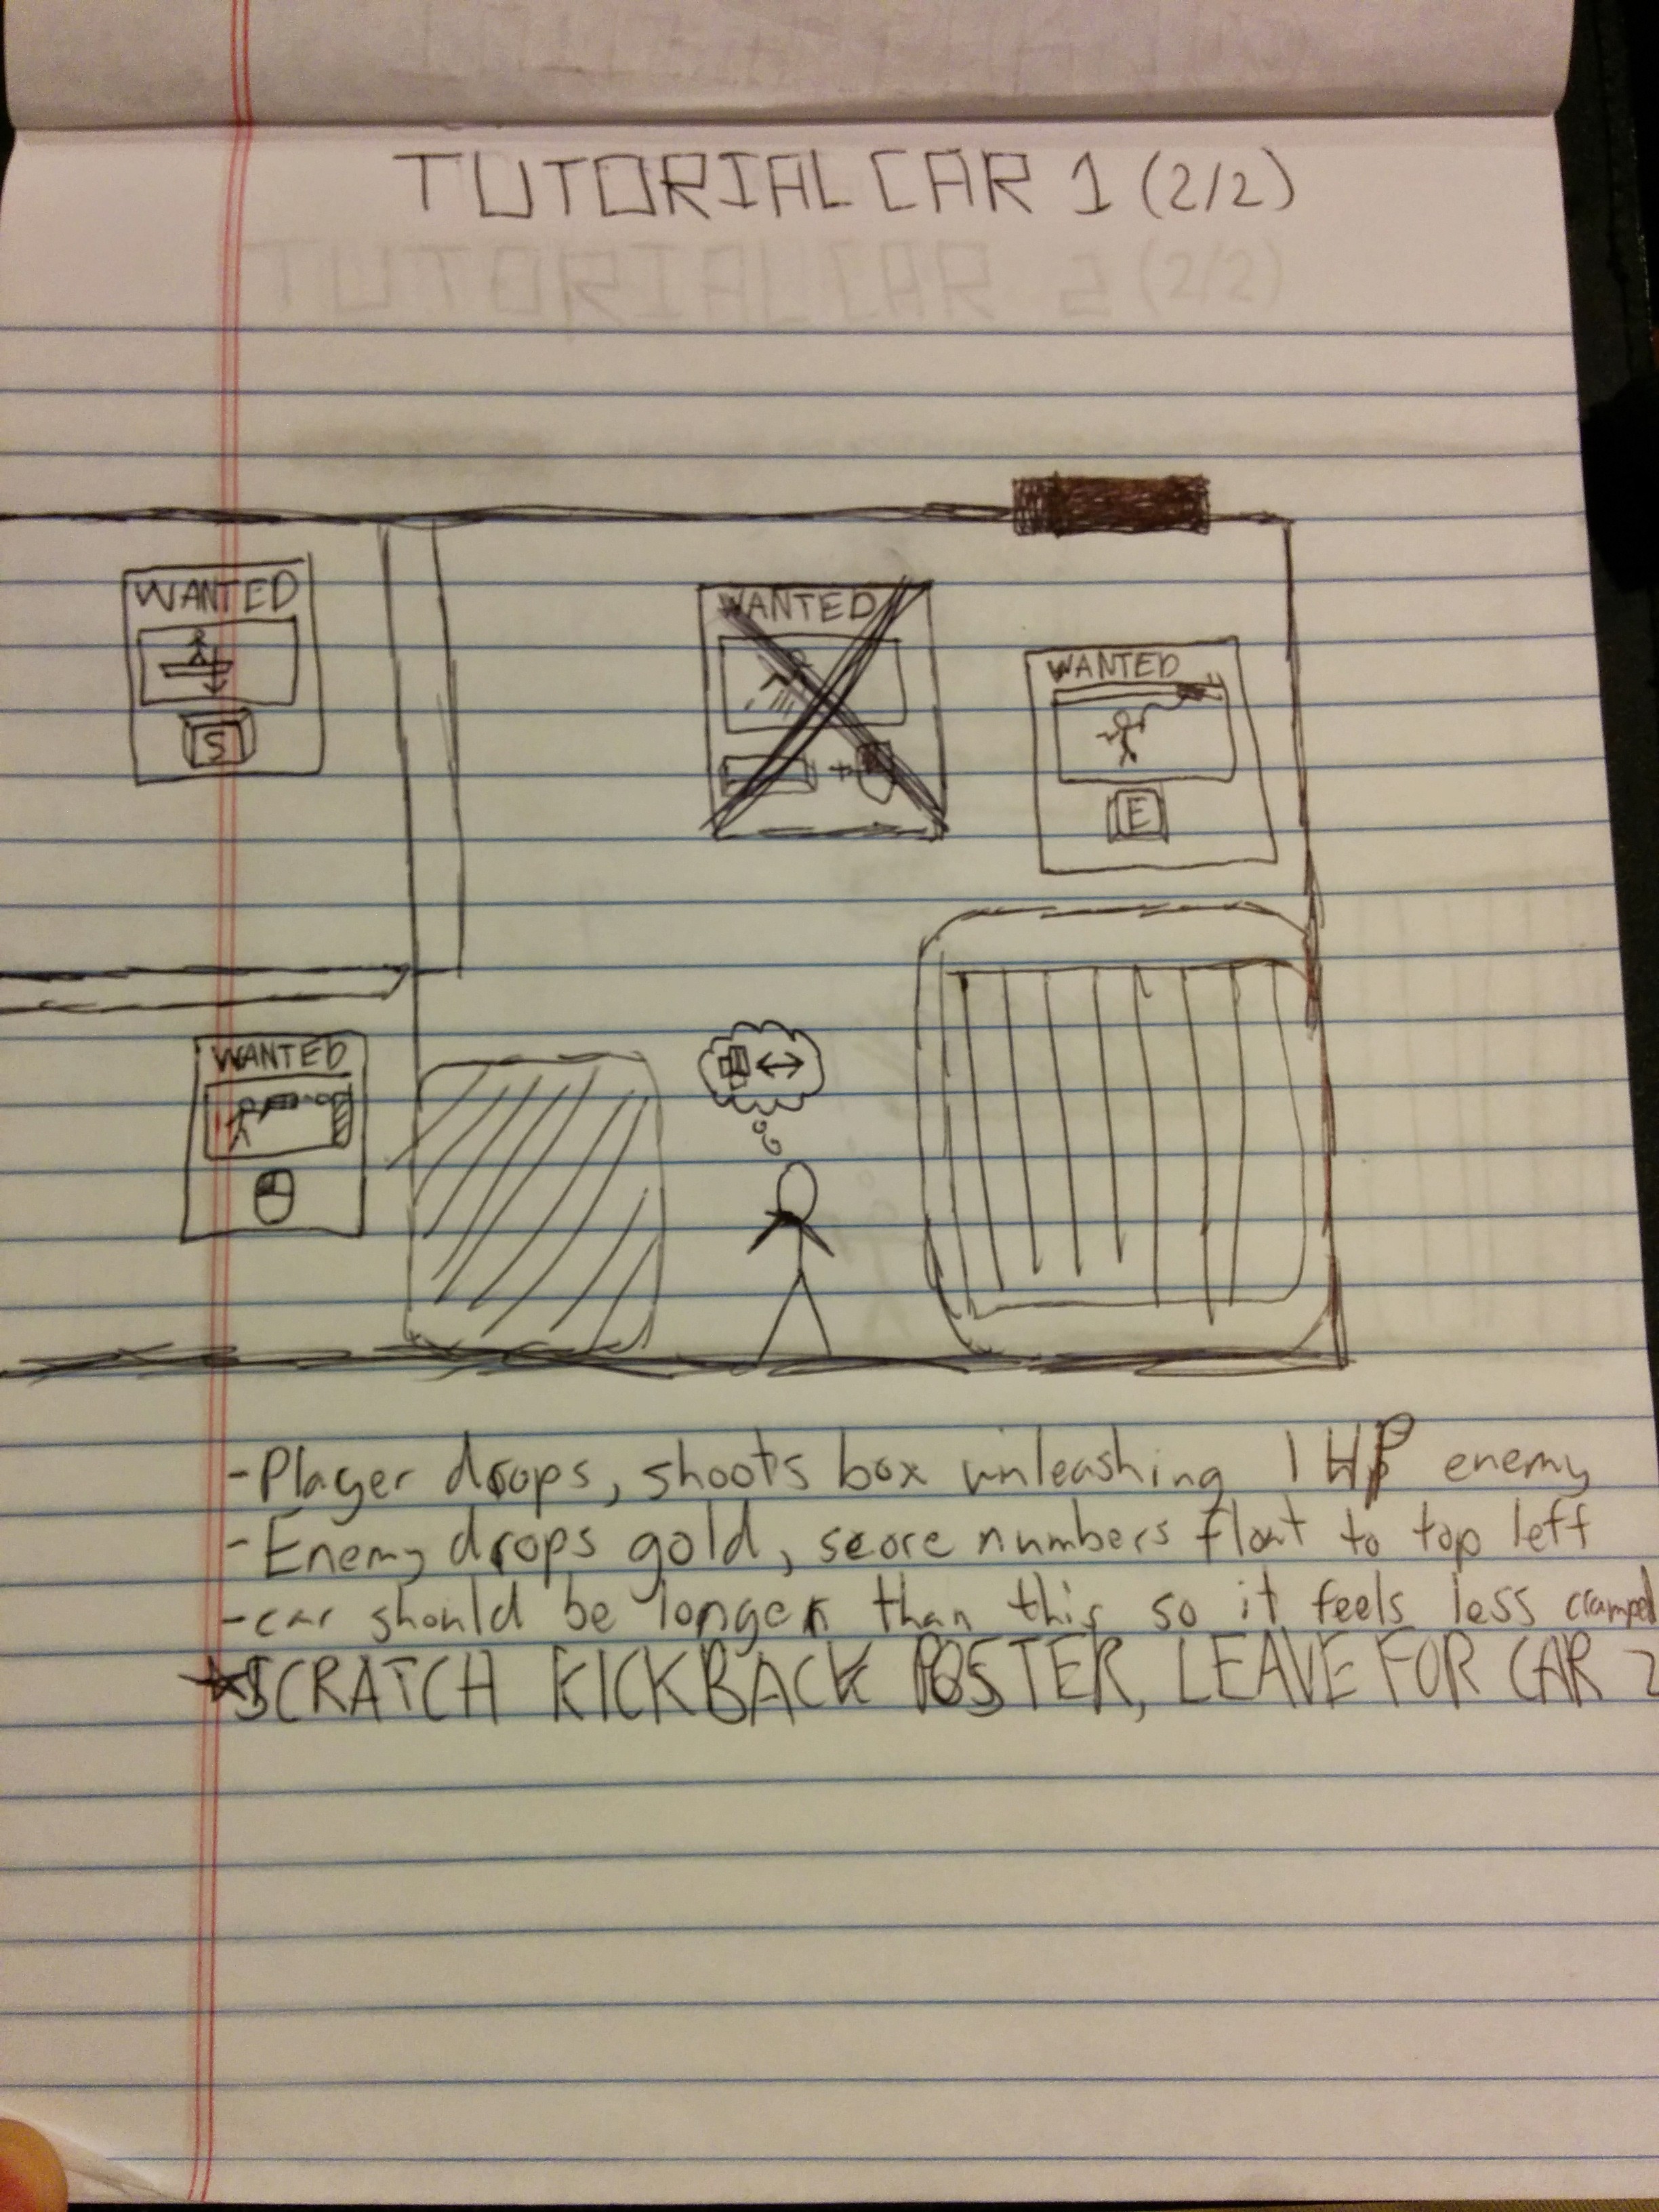 TUTORIAL CAR 1 (2/2)
TUTORIAL CAR 2 (2/2)
WANTED
S
WANTED
WANTED
E
+
WANTED
-Player drops, shoots box unleashing 1 HP enemy
-Enemy drops gold, score numbers float to top left
-car should be longer than this so it feels less cramped
*SCRATCH KICKBACK POSTER, LEAVE FOR CAR 2